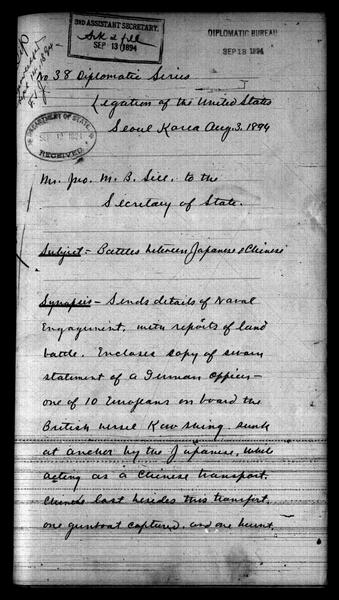 3RD ASSISTANT SECRETARY.
Ack & file
SEP 13 1894
DIPLOMATIC BUREAU
SEP 13 1894
No 38 Diplomatic Series
Legation of the United States
Seoul Korea Aug. 3. 1894
DEPARTMENT OF STATE.
RECEIVED.
Mr. Jno. M. B. Sill. to the
Secretary of State.
Subject:- Battles between Japanese & Chinese
Synopsis - Sends details of Naval
Engagement, with reports of land
battle. Encloses copy of sworn
statement of a German officer -
one of 10 Europeans on board the
British vessel Kow shing sunk
at anchor by the Japanese, while
acting as a Chinese transport.
Chinese lost besides this transport,
one gunboat captured, and one burnt.